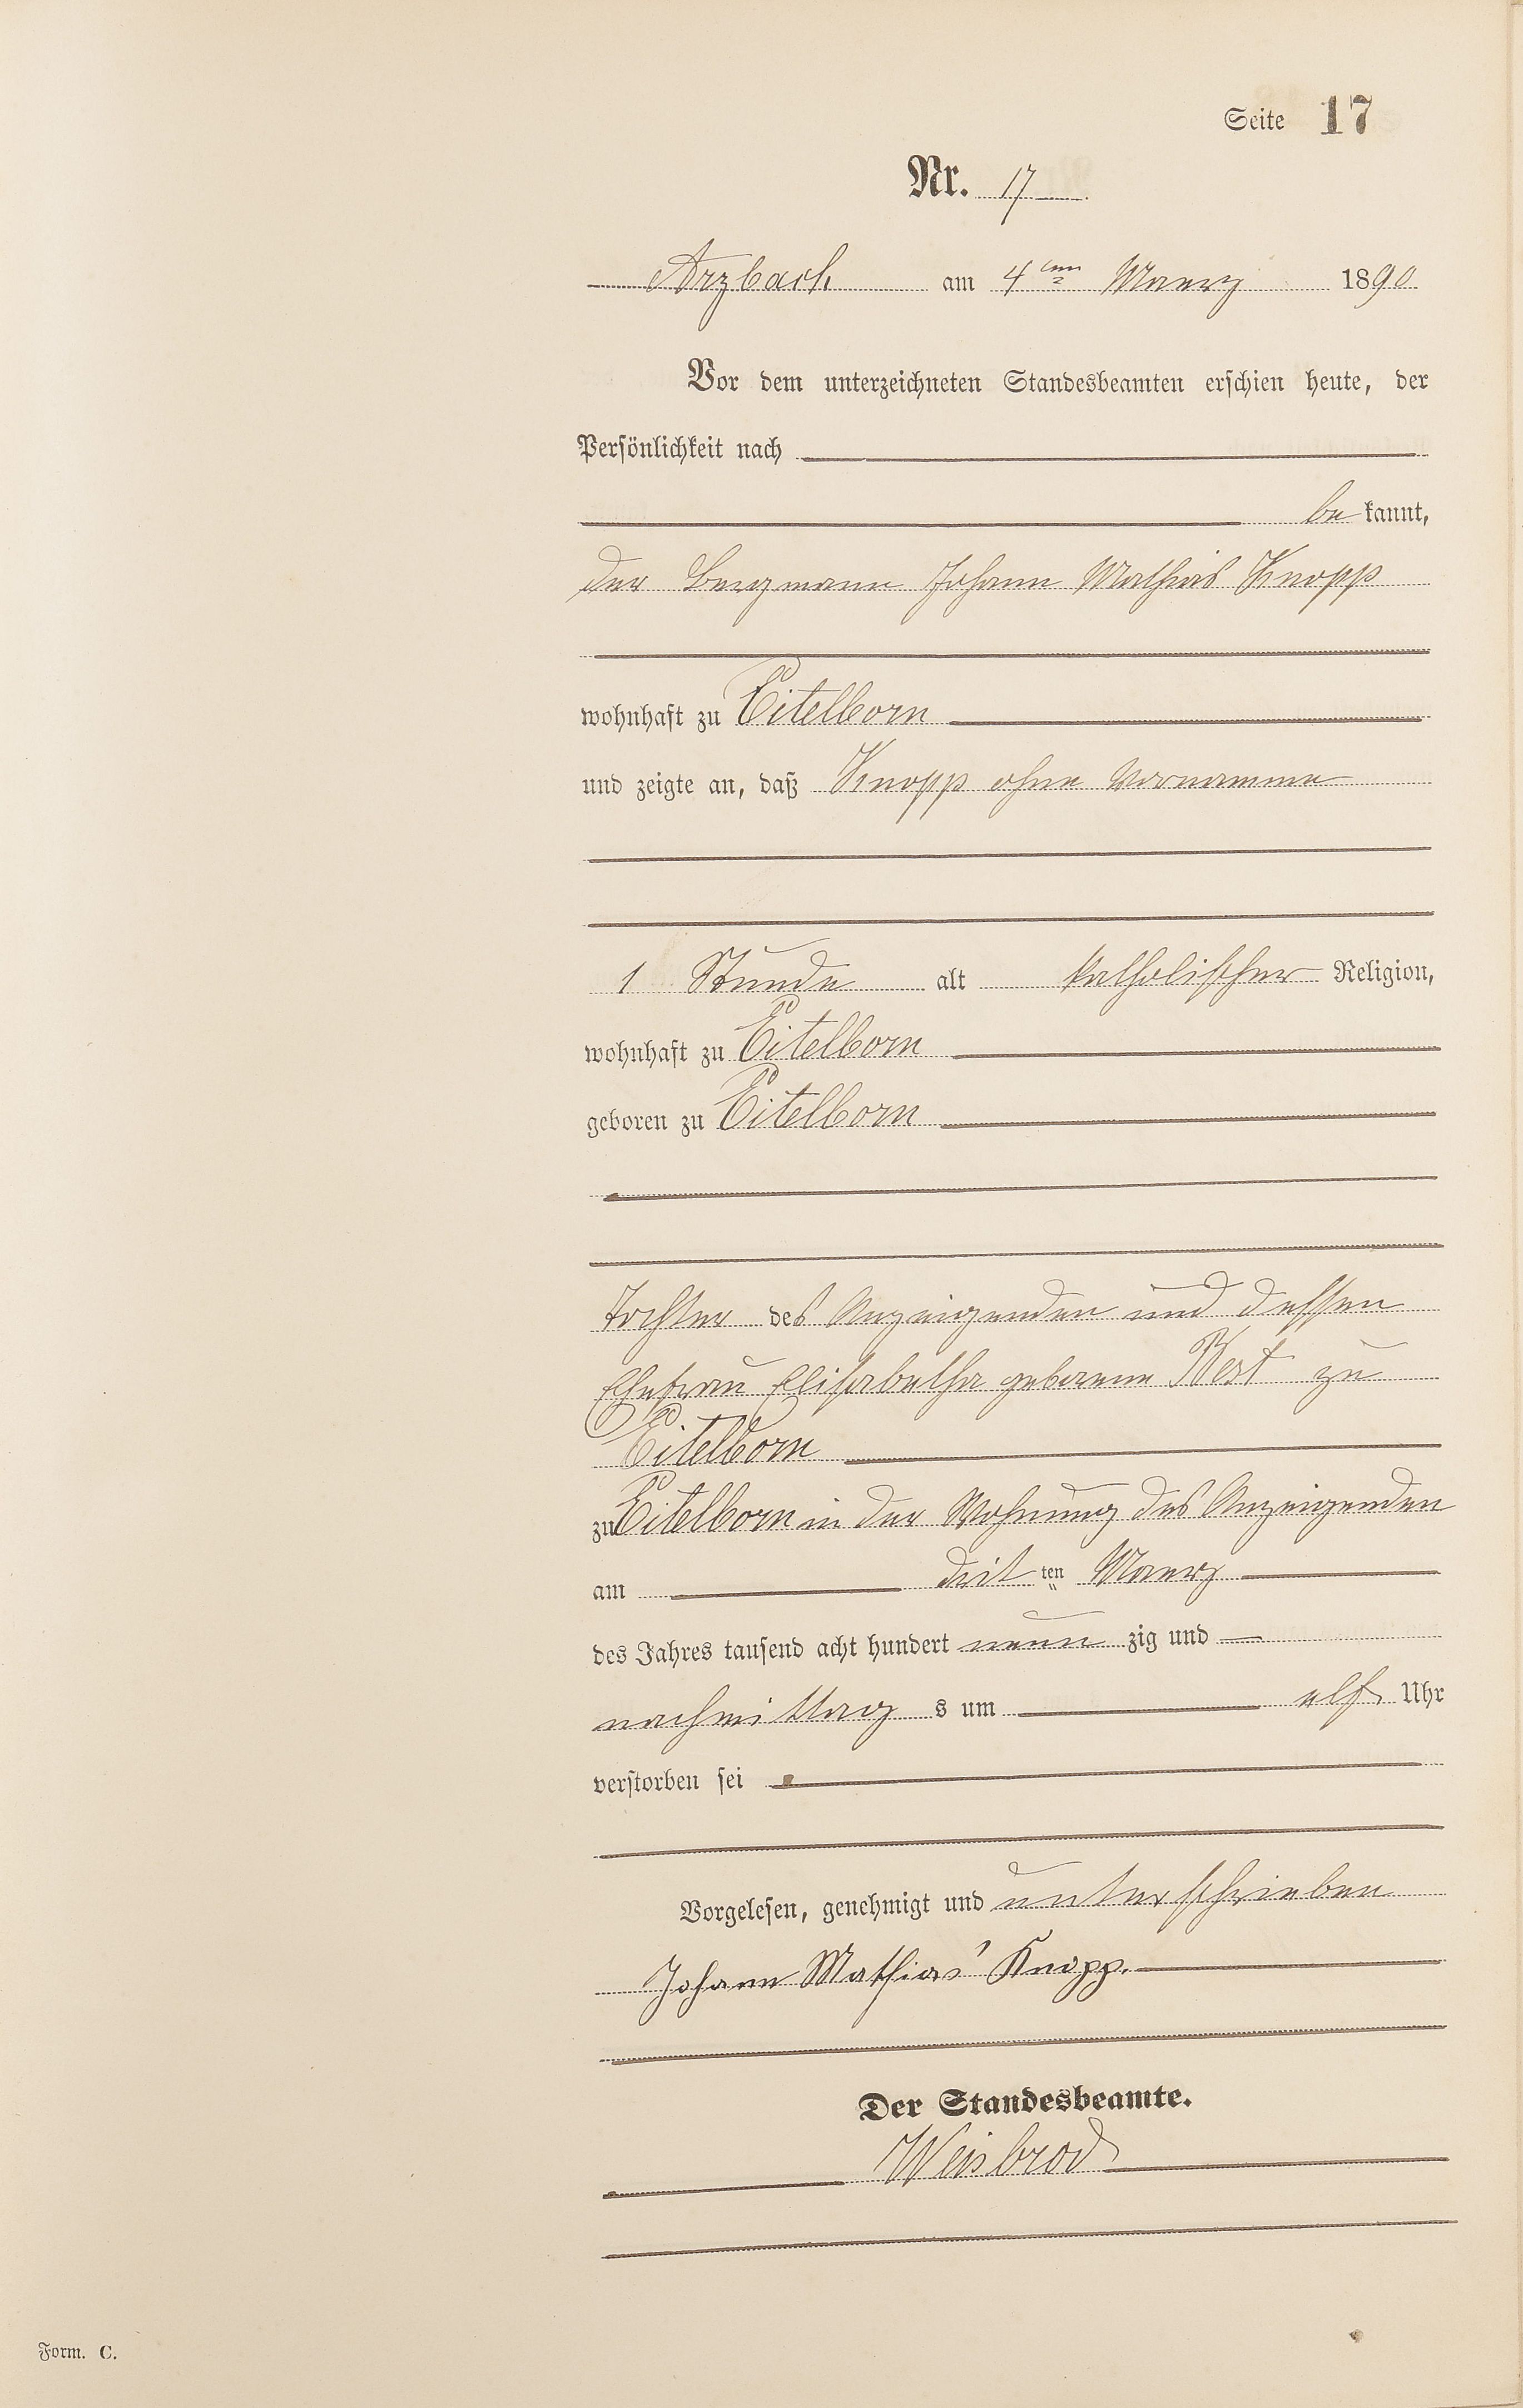 Seite 17
Nr. 17
Arzbach am 4ten Maerz 1890
Vor dem unterzeichneten Standesbeamten erschien heute, der
Persönlichkeit nach
be kannt,
der Bergmann Johann Mathias Knopp
wohnhaft zu Eitelborn
und zeigte an, daß Knopp ohne Vornamme
1 Stunde alt katholischer Religion,
wohnhaft zu Eitelborn
geboren zu Eitelborn
Tochter des Anzeigenden und dessen
Ehefrau Elisabetha geborene Best zu
Eitelborn
zu Eitelborn in der Wohnung des Anzeigenden
am drit ten Maerz
des Jahres tausend acht hundert neun zig und
nachmittag s um elf Uhr
verstorben sei
Vorgelesen, genehmigt und unterschrieben
Johann Mathias Knopp.
Der Standesbeamte.
Weisbrod
Form. C.